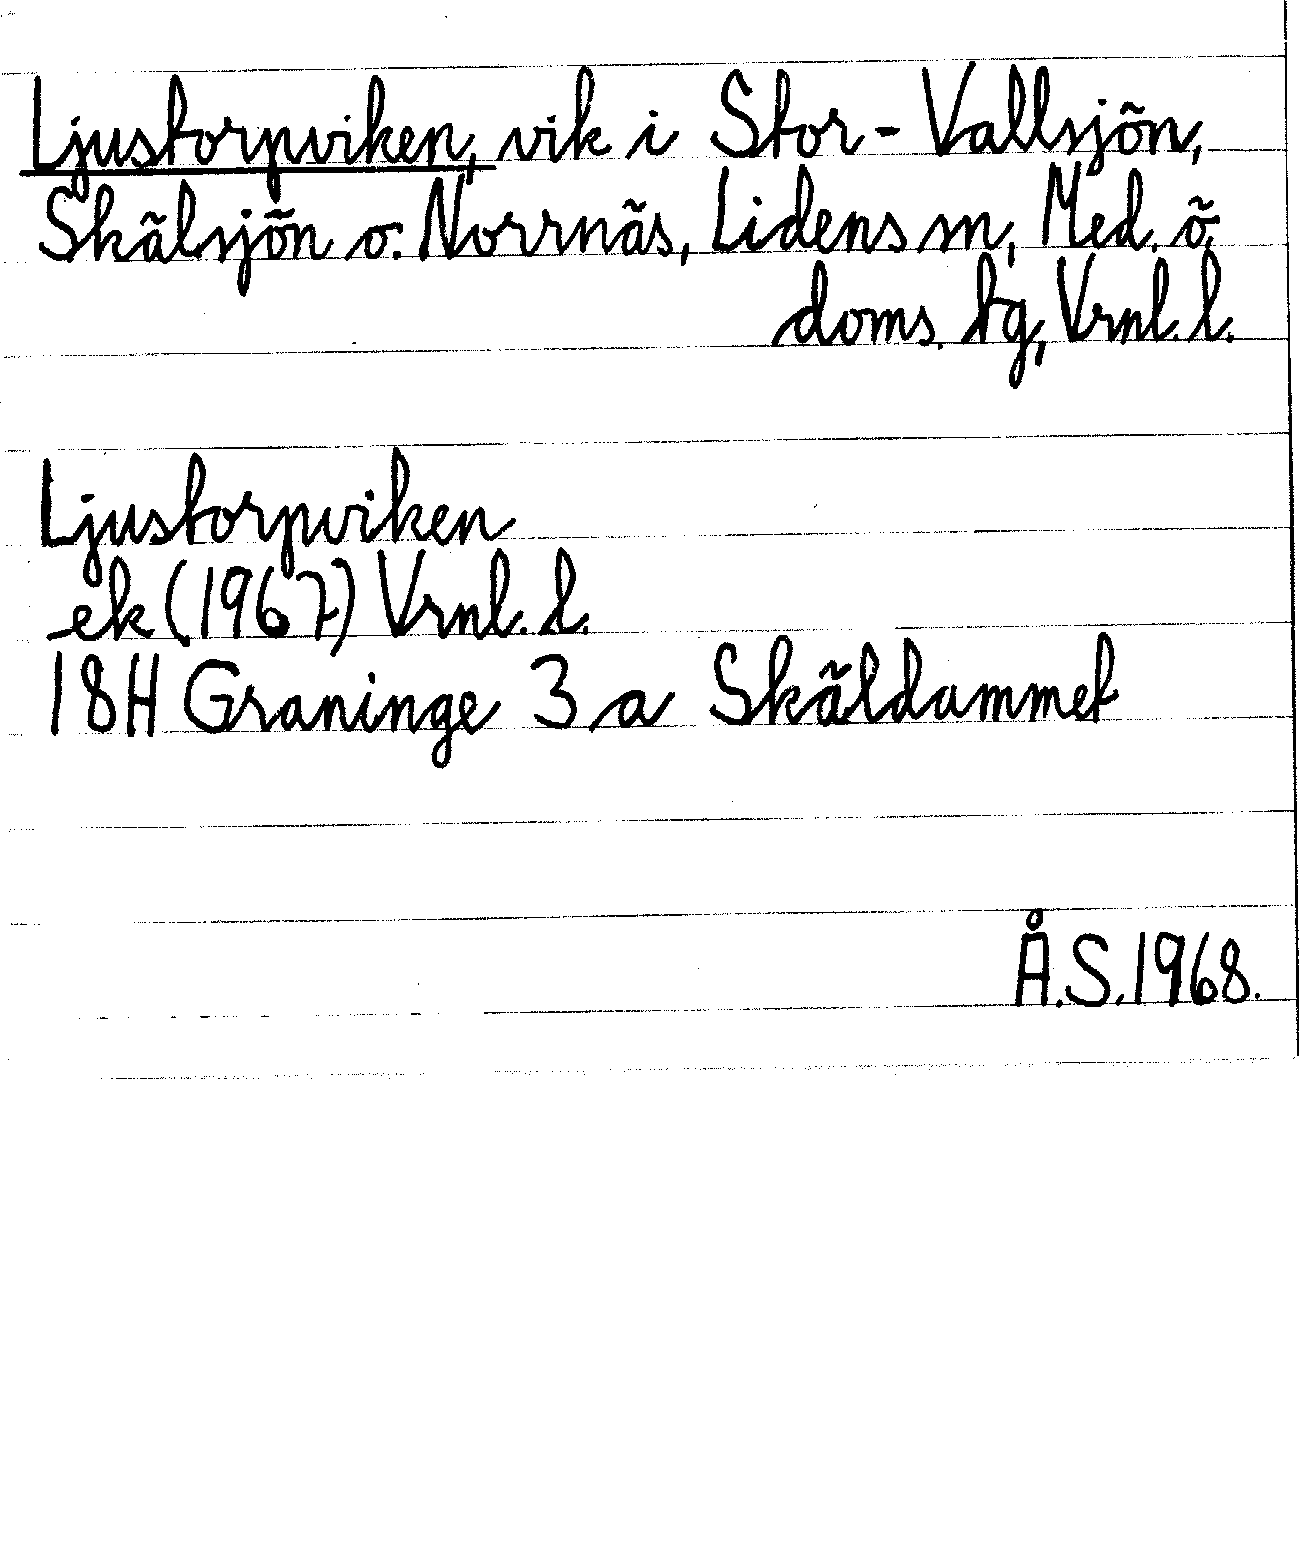 Ljustorpviken, vik i Stor-Vallsjön,
Skälsjön o. Norrnäs, Lidens sn, Med. ö.
doms. tg, Vrnl. l.
Ljustorpviken
ek (1967) Vrnl. l.
18H Graninge 3 a Skäldammet
Å.S. 1968.